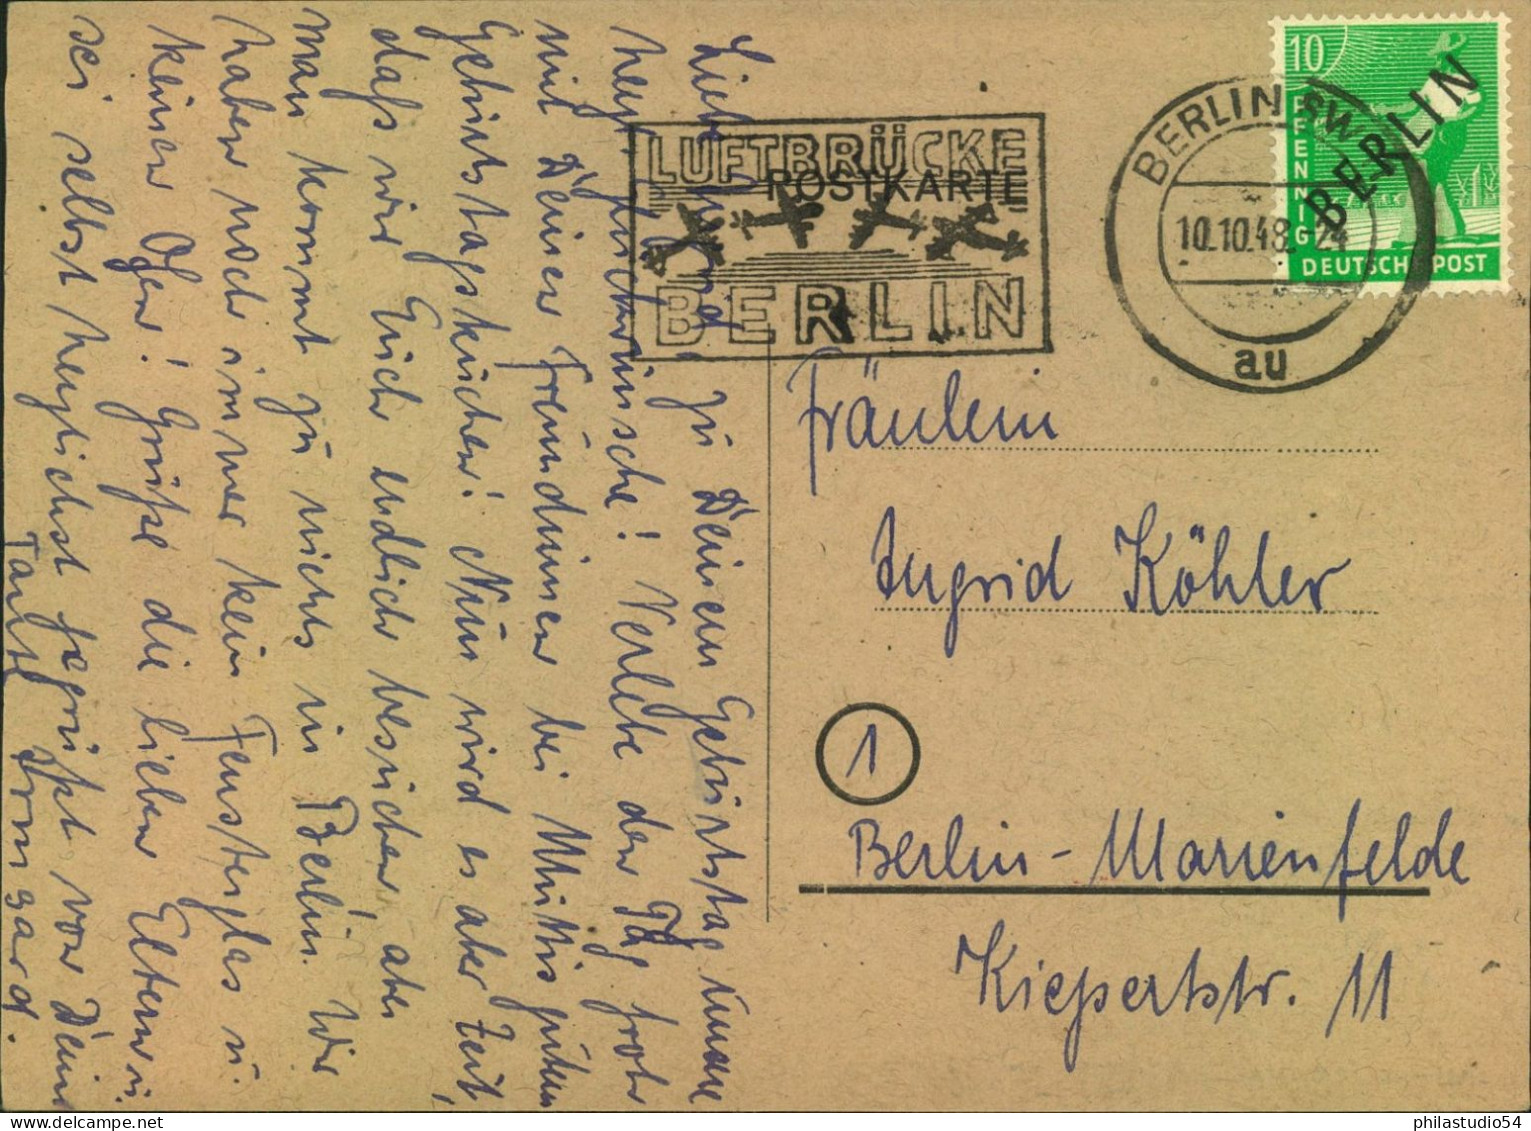 Liebe Ingrid! Zu Deinem Geburtstag unsere
herzl. Glückwünsche! Verlebe den Tag froh
mit Deinen Freundinnen bei Muttis gutem
Geburtstagskuchen! Nun wird es aber Zeit,
daß wir Euch endlich besuchen, aber
man kommt zu nichts in Berlin. Wir
haben noch immer kein Fensterglas u.
keinen Ofen! Grüße die lieben Eltern u.
sei selbst herzlichst gegrüßt von Deiner
Tante Irmgard.
LUFTBRÜCKE
POSTKARTE
BERLIN
BERLIN SW
10.10.48.-24
au
10
PFENNIG
BERLIN
DEUTSCHE POST
Fräulein
Ingrid Köhler
1
Berlin-Marienfelde
Kiepertstr. 11
philastudio54